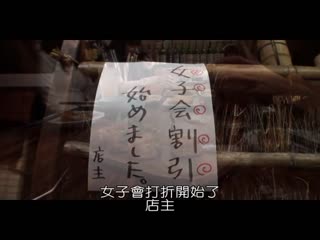 女子会割引
始めました。
店主
女子會打折開始了
店主